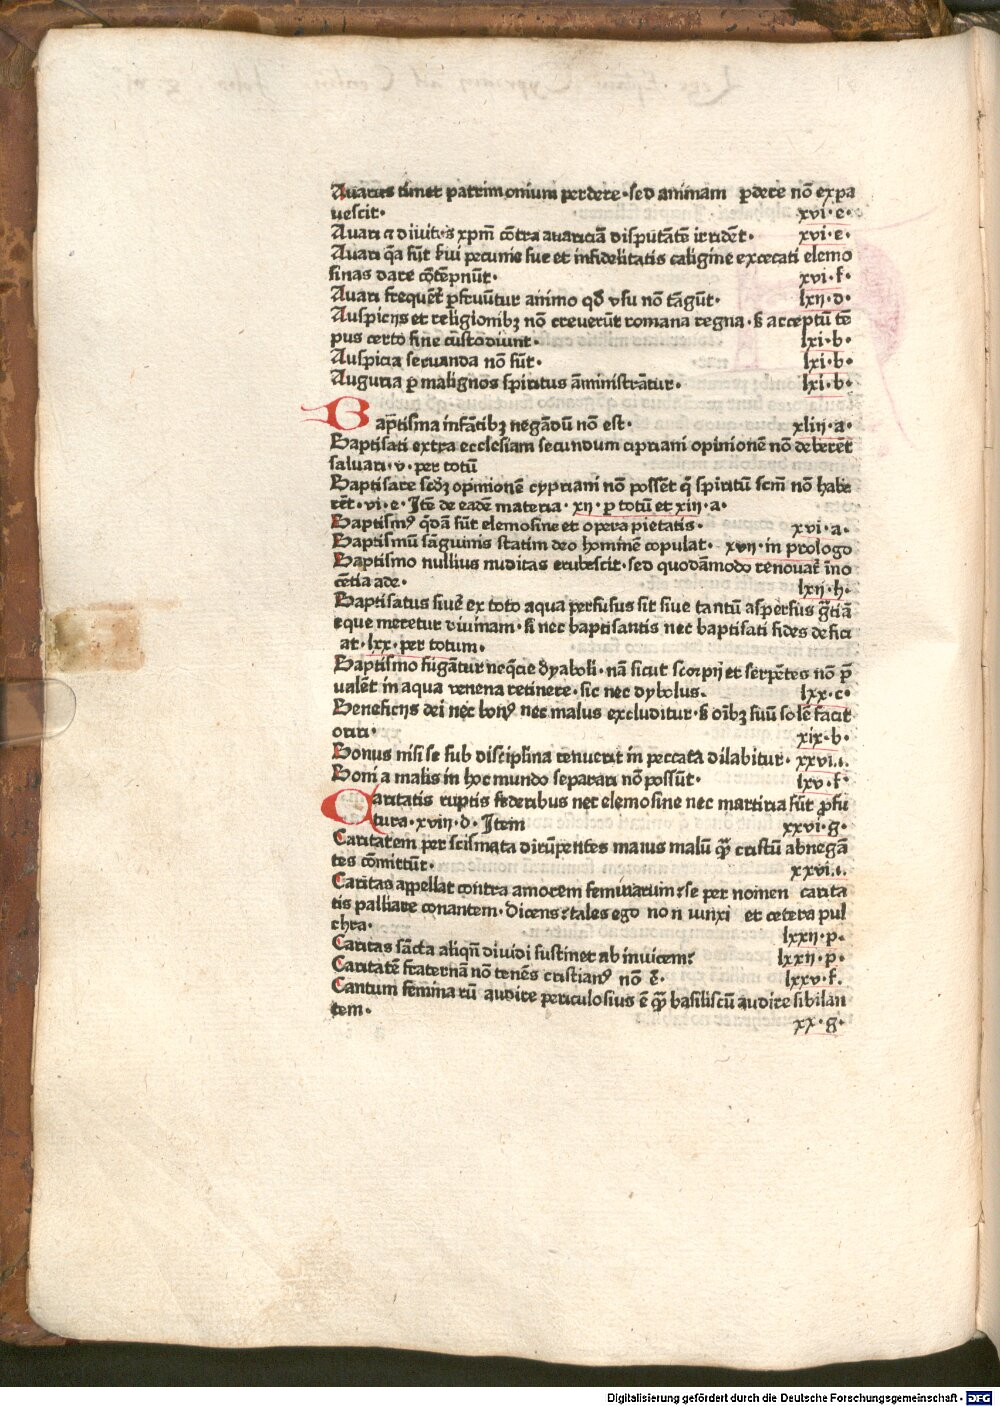 Avarus timet patrimonium perdere·sed animam ꝑdere nō expa
uescit· xvi·e·
Avari ⁊ diuites xpm̄ cōtra auariciā disputātē irridēt· xvi·e·
Avari q̄a sūt serui pecunie sue et infidelitatis caligine excecati elemo
sinas dare cōtēpnūt· xvi·f·
Avari frequēt̄ ꝑfruūtur animo qd̄ vsu nō tāgūt· lxij·d·
Auspicijs et religionibꝫ nō creuerūt romana regna·s̄ acceptū tē
pus certo fine custodiunt· lxi·b·
Auspicia seruanda nō sūt· lxi·b·
Auguria ꝑ malignos spiritus āministrātur· lxi·b·
Bap̄tisma infātibꝫ negādū nō est· xliij·a·
Baptisati extra ecclesiam secundum cipriani opinionē nō deberēt
saluari·v·per totū
Baptisare scd̄ꝫ opinionē cypriani nō possēt q̄ spiritū scm̄ nō habe
rēt·vi·e·Itē de eadē materia·xij·ꝑ totū et xiij·a·
Baptismꝰ q̄dā sūt elemosine et opera pietatis· xvi·a·
Baptismū sāguinis statim deo hominē copulat· xvij·in prologo
Baptismo nullius nuditas erubescit·sed quodāmodo renouat̄ īno
cētia ade· lxij·h·
Baptisatus siue ex toto aqua perfusus sit siue tantū aspersus gr̄tiā
eque meretur diuinam·s̄ nec baptisantis nec baptisati fides defici
at·lxx·per totum·
Baptismo fugātur neq̄cie dyaboli·nā sicut scorpij et serpētes nō p̄
ualēt in aqua venena retinere·sic nec dybolus· lxx·c·
Beneficijs dei nec bonꝰ nec malus excluditur·s̄ oībꝫ suū solē facit
oriri· xix·b·
Bonus nisi se sub disciplina tenuerit in peccata dilabitur· xxvi·i·
Boni a malis in hoc mundo separari nō possūt· lxv·f·
Caritatis ruptis federibus nec elemosine nec martiria sūt ꝓfu
tura·xviij·d·Item xxvi·g·
Caritatem per scismata dirūpentes maius malū q̄ꝫ cristū abnegā
tes cōmittūt· xxvi·i·
Caritas appellat contra amorem feminarum se per nomen carita
tis palliare conantem·dicens tales ego non iunxi et cetera pul
chra· lxxij·p·
Caritas sācta aliqn̄ diuidi sustinet ab inuicem? lxxij·p·
Caritatē fraternā nō tenēs cristianꝰ nō ē· lxxv·f·
Cantum feminarū audire periculosius ē q̄ꝫ basiliscū audire sibilan
tem· xx·g·
Digitalisierung gefördert durch die Deutsche Forschungsgemeinschaft · DFG